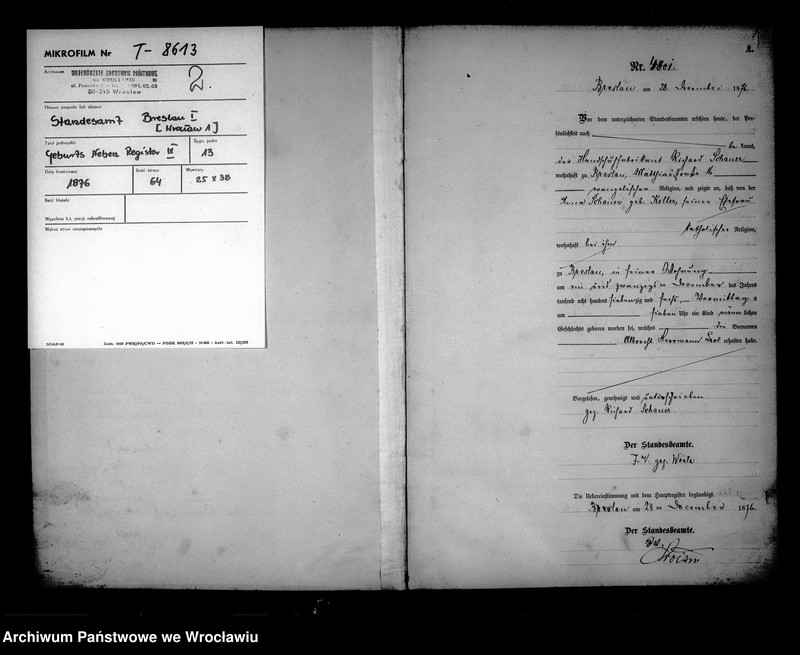 MIKROFILM Nr T-8613
Archiwum WOJEWÓDZKIE ARCHIWUM PAŃSTWOWE
50-215 Wrocław
2.
Nazwa zespołu lub zbioru
Standesamt Breslau I
[Wrocław 1]
Tytuł jednostki
Geburts Neben Register IX
Sygn. jedn.
13
Daty krańcowe
1876
Ilość stron
64
Wymiary
25 x 38
Ilość klatek
Wykaz stron nieczytelnych
Nr. 4801
Breslau am 28 December 1876
Vor dem unterzeichneten Standesbeamten erschien heute, der Per-
sönlichkeit nach
be kannt,
der Handschuhfabrikant Richard Schauer
wohnhaft zu Breslau, Matthiasstraße 16
evangelischer Religion, und zeigte an, daß von der
Anna Schauer geb. Keller, seiner Ehefrau
katholischer Religion,
wohnhaft bei ihm
zu Breslau, in seiner Wohnung
am ein und zwanzigsten December des Jahres
tausend acht hundert siebenzig und sechs Vormittags
um sieben Uhr ein Kind männlichen
Geschlechts geboren worden sei, welches die Vornamen
Albrecht Herrmann Carl erhalten habe.
Vorgelesen, genehmigt und unterschrieben
gez. Richard Schauer
Der Standesbeamte.
J. V. gez.
Die Uebereinstimmung mit dem Hauptregister beglaubigt
Breslau am 28 ten December 1876
Der Standesbeamte.
Archiwum Państwowe we Wrocławiu